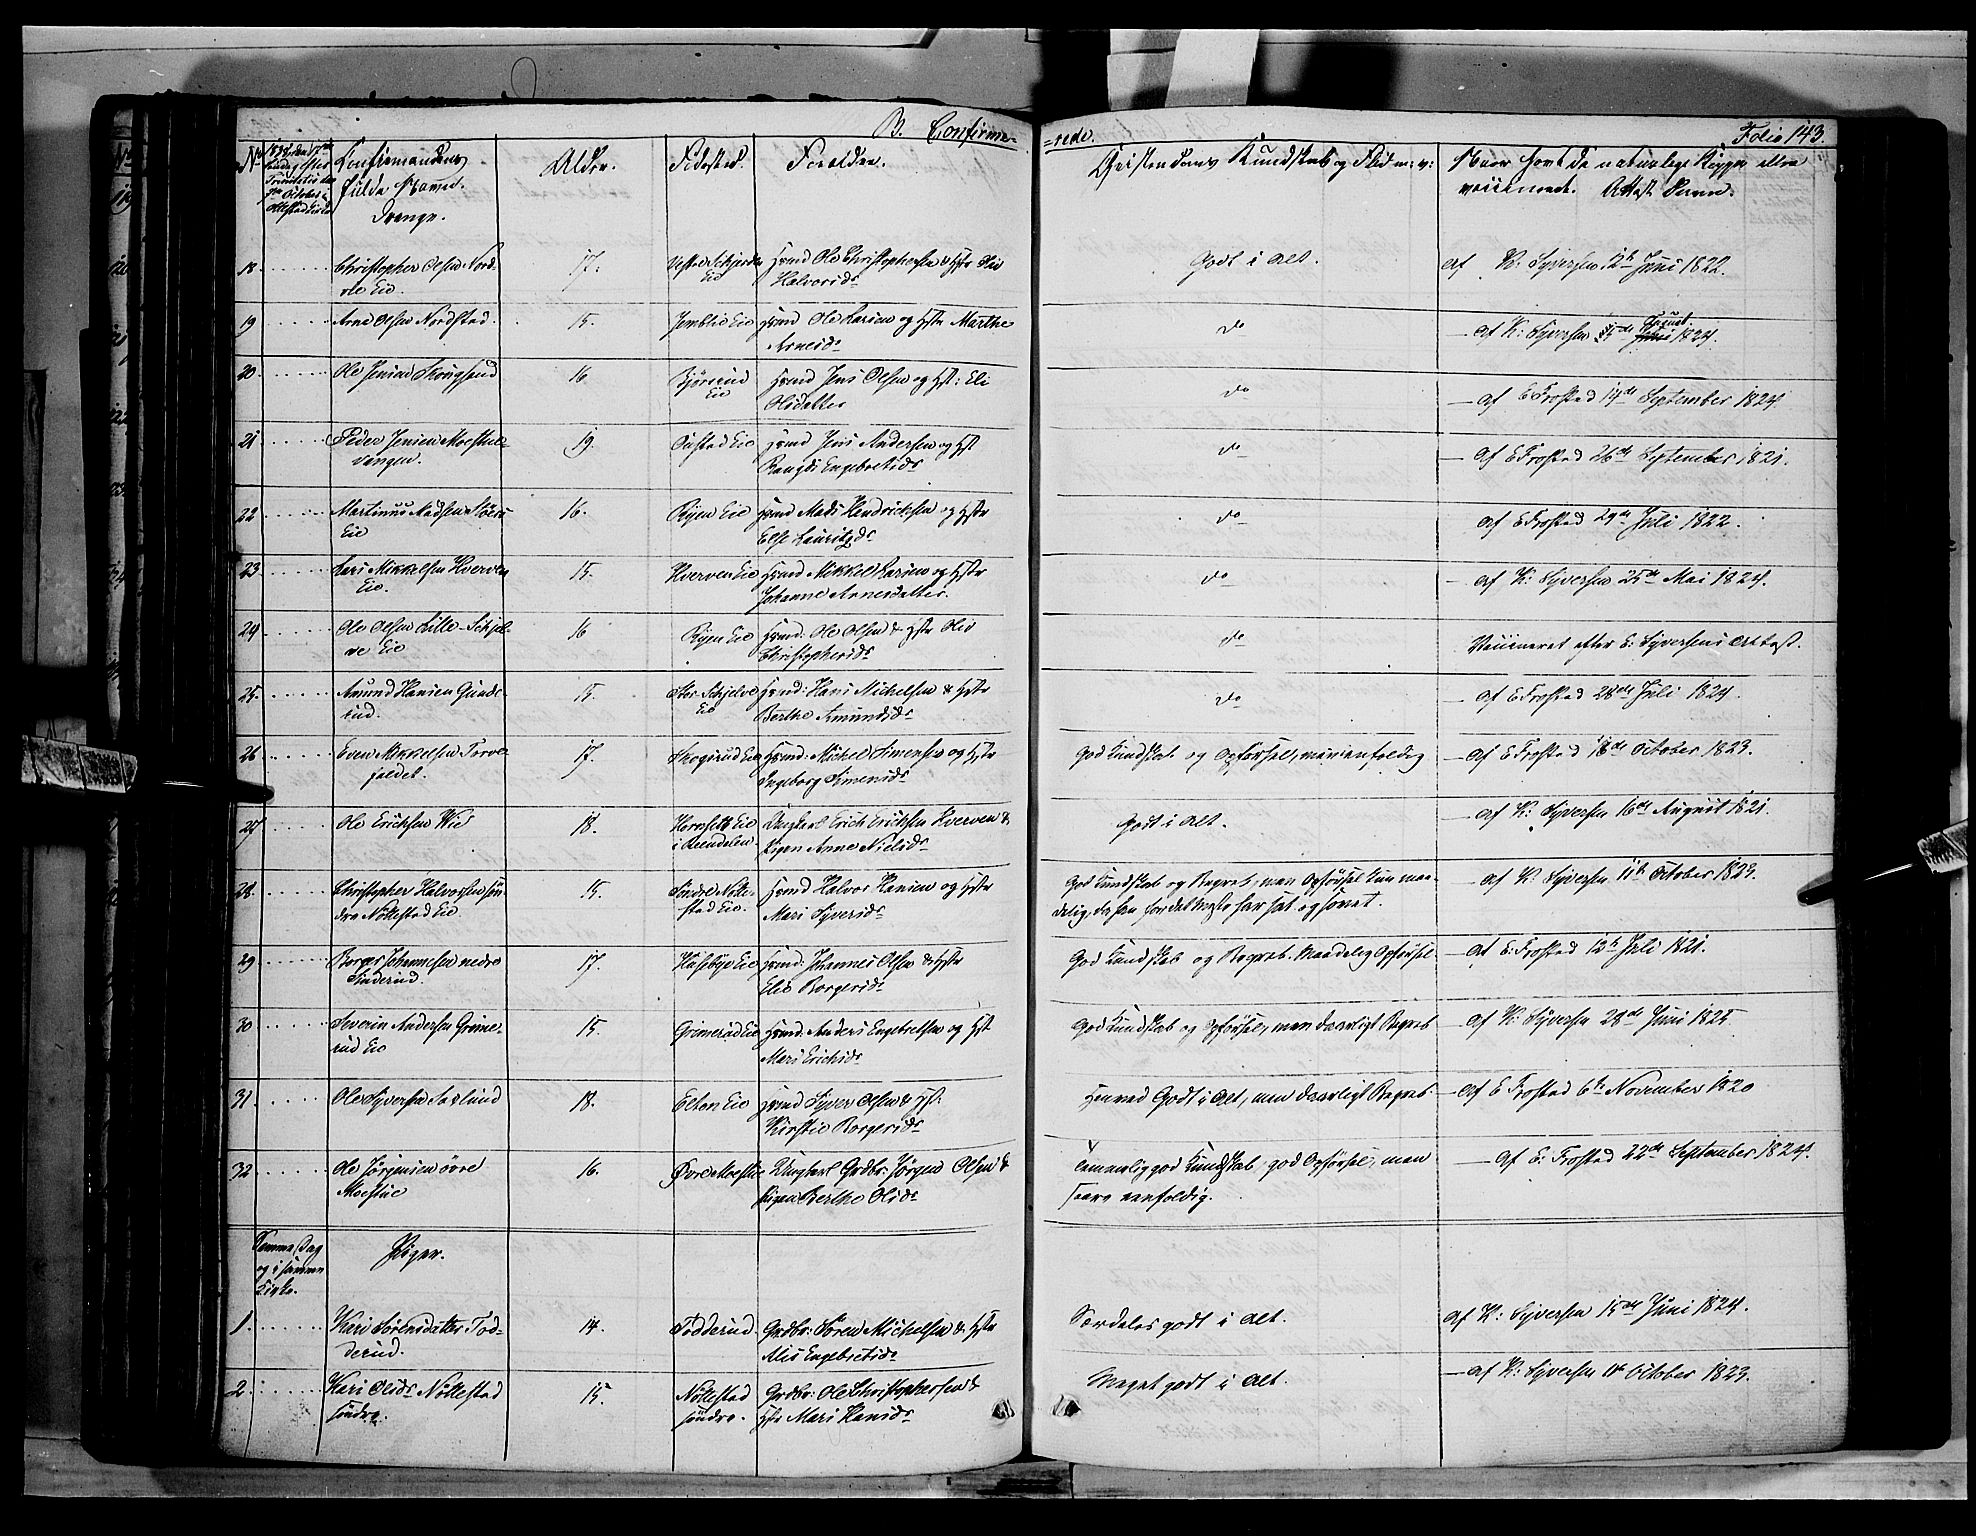 B. Confirme-
=rede.
Folio 143.
No
Confirmandens
fulde Navne.
Drenge.
Alder.
Fødested.
Forældre.
Christendoms Kundskab og Flid m: v:
Naar havt de naturlige Kopper eller
vaccinerede. Attest derom.
18. Christopher Olsen Nord-
re Eie.
17.
Eie
Hmd Ole Christophersen & Hstr Oliv
Halvorsdr
Godt i Alt.
af K: Syversen 12te Juni 1822.
19 Arne Olsen Nordstad.
15.
Hmd Ole Larsen og Hstr Marthe
Arnesdr
do
- af K: Syversen August 1824.
20. Ole Jensen Skougsrud
16
Bjørnrud
Eie
Hmd Jens Olsen og Hst: Eli
Olsdatter
do
- af E Frostad 14de September 1824.
21 Peder Jensen Moestue-
vangen.
19.
Eie
Hmd Jens Andersen og Hst
Rangdi Engebretsdr
do
- af E Frostad 26de September 1821.
22 Martinus Madsen
Eie
16.
Ryen Eie
Hmd Mads Hendricksen og Hstr
Else Lauritzdr
do
af E Frostad 29de Juli 1822.
23. Lars Mikkelsen Hverven
Eie.
15.
Hverven Eie
Hmd Mikkel Larsen og Hstr
Johanne Arnesdatter.
do
- af K: Syversen 25de Mai 1824.
24. Ole Olsen Lille-Schjel-
ve Eie
16
Ryen Eie
Hmd. Ole Olsen & Hstr Oliv
Christophersdr
do
Vaccineret efter E: Syversens Attest.
25. Amund Hansen Gunde-
rud.
15.
Stor-Schjelve
Eie
Hmd: Hans Michelsen & Hstr
Berthe Amundsdr
do
- af E Frostad 28de Juli 1824.
26 Even Mikkelsen Torve-
jeldet.
17.
Skogsrud Eie
Hmd: Mickel Simensen og Hstr
Ingeborg Simensdr
God Kundskab og Opførsel, men eenfoldig
- af E Frostad 18de October 1823.
27 Ole Ericksen Wie
18.
Hornselt Eie
i Reendalen
Ungkarl Erich Ericksen Hverven &
Pigen Anne Nielsdr
Godt i Alt.
- af K: Syversen 16de August 1821.
28. Christopher Halvorsen søn-
dre Nøllestad Eie.
15.
Søndre Nølle-
stad Eie.
Hmd Halvor Hansen og Hstr
Mari Syversdr
God Kundskab og Begreb, men Opførsel kun maa-
delig, da han for det meste har sat og sovet.
- af K: Syversen 11te October 1823.
29 Borger Johannesen nedre
Sinderud.
17.
Huusebye Eie
Hmd. Johannes Olsen & Hstr
Elie Borgersdr
God Kundskab og Begreb. Maadelig Opførsel
- af E. Frostad 12te Juli 1821.
30 Severin Andersen Grime-
rud Eie
15.
Grimerud Eie
Hmd. Anders Engebretsen og Hst
Mari Erichsdr
God Kundskab og Opførsel, men daarligt Begreb
- af K: Syversen 28de Juni 1825
31. Ole Syversen Saxlund
18.
Elton Eie
Hmd Syver Olsen & Hst:
Kirstie Borgersdr
Henved Godt i Alt, men daarligt Begreb.
- af E Frostad 6te November 1820
32 Ole Jørgensen øvre
Moestue
16.
Øvre Moestue
Ungkarl Grdbr. Jørgen Olsen &
Pigen Berthe Olsdr
Temmelig god Kundskab, god Opførsel, men
saare eenfoldig.
- af E: Frostad 22de September 1824.
Samme Dag
og i samme
Kirke.
Piger.
1. Kari Sørensdatter Tod-
derud.
14.
Todderud.
Grdbr: Søren Michelsen & Hstr
Alis Engebretsdr
Særdeles godt i Alt.
af K: Syversen 15de Juni 1824.
2. Kari Olsdr Nøllestad
søndre.
15.
Nøllestad
søndre.
Grdbr: Ole Christophersen &
Hstr Mari Hansdr
Meget godt i Alt.
- af K: Syversen 11te October 1823.